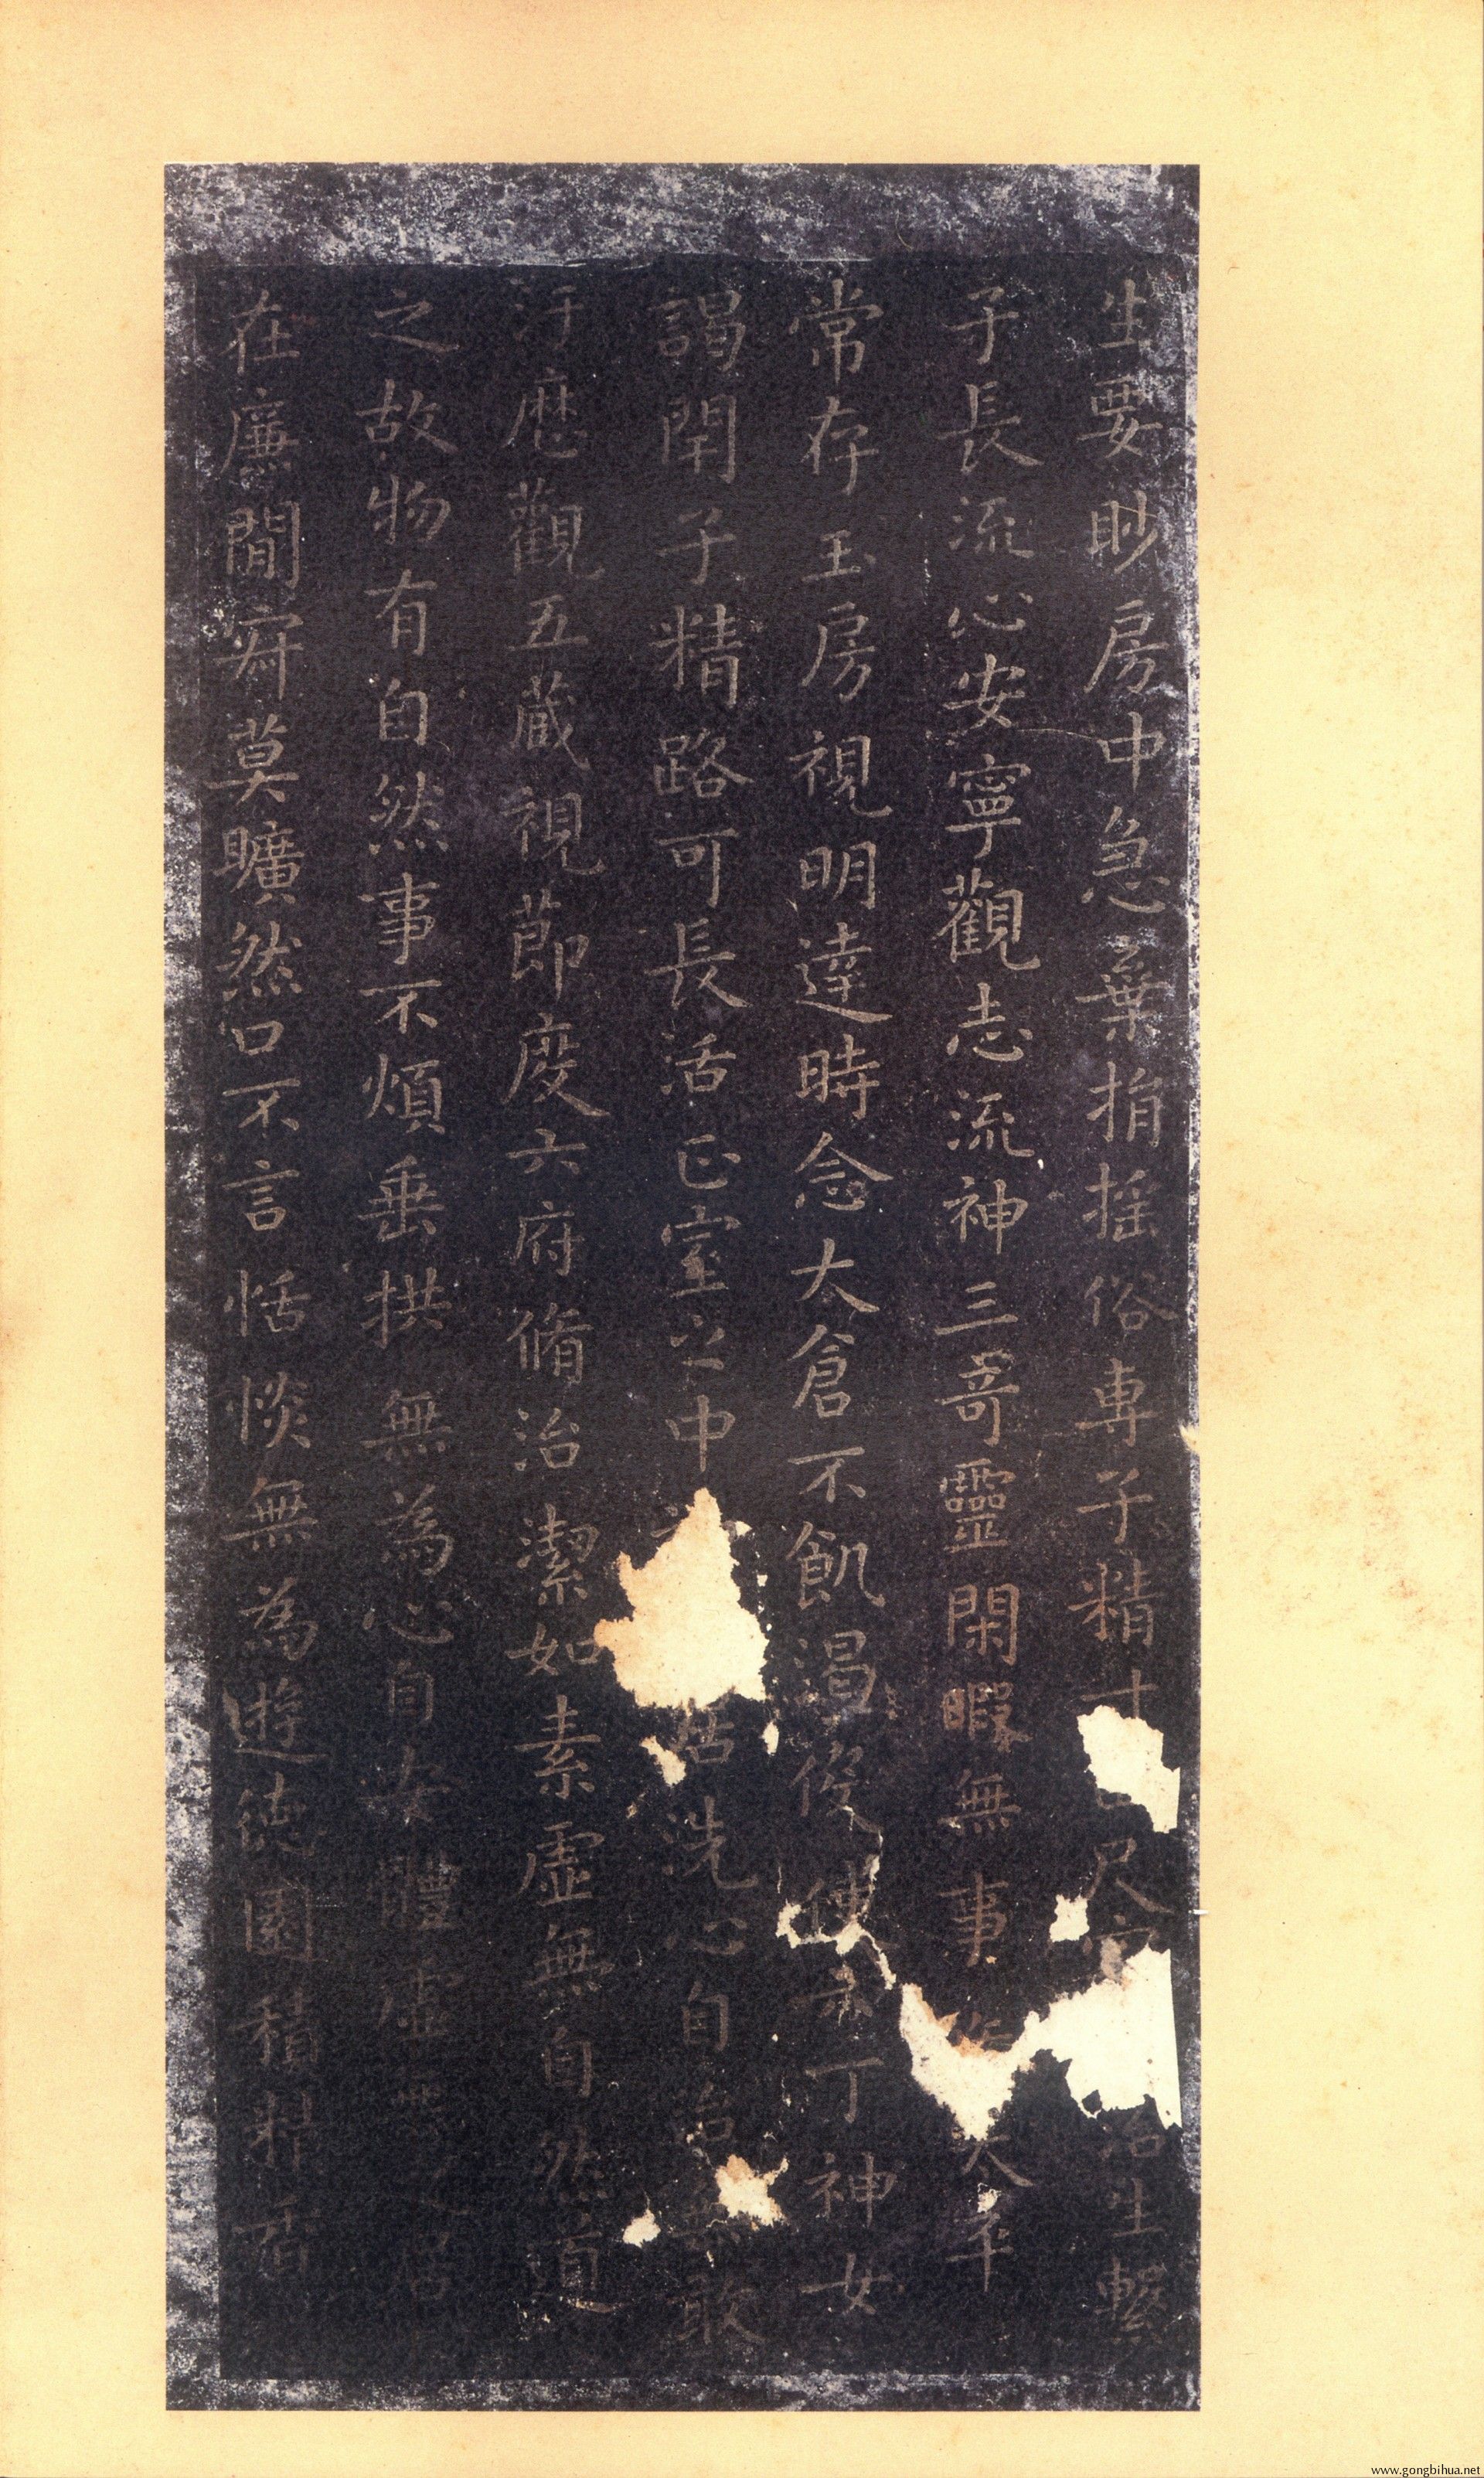 生要眇房中急棄捐搖俗專子精寸尺治生繫
子長流心安寧觀志流神三奇靈閑暇無事太平
常存玉房視明達時念大倉不飢渴役使六丁神女
謁閇子精路可長活正室之中居洗心自治無敢
汙歷觀五藏視節度六府脩治潔如素虛無自然道
之故物有自然事不煩垂拱無為心自安體虛無之居
在廉閒寂莫曠然口不言恬惔無為遊德園積精香
www.gongbihua.net